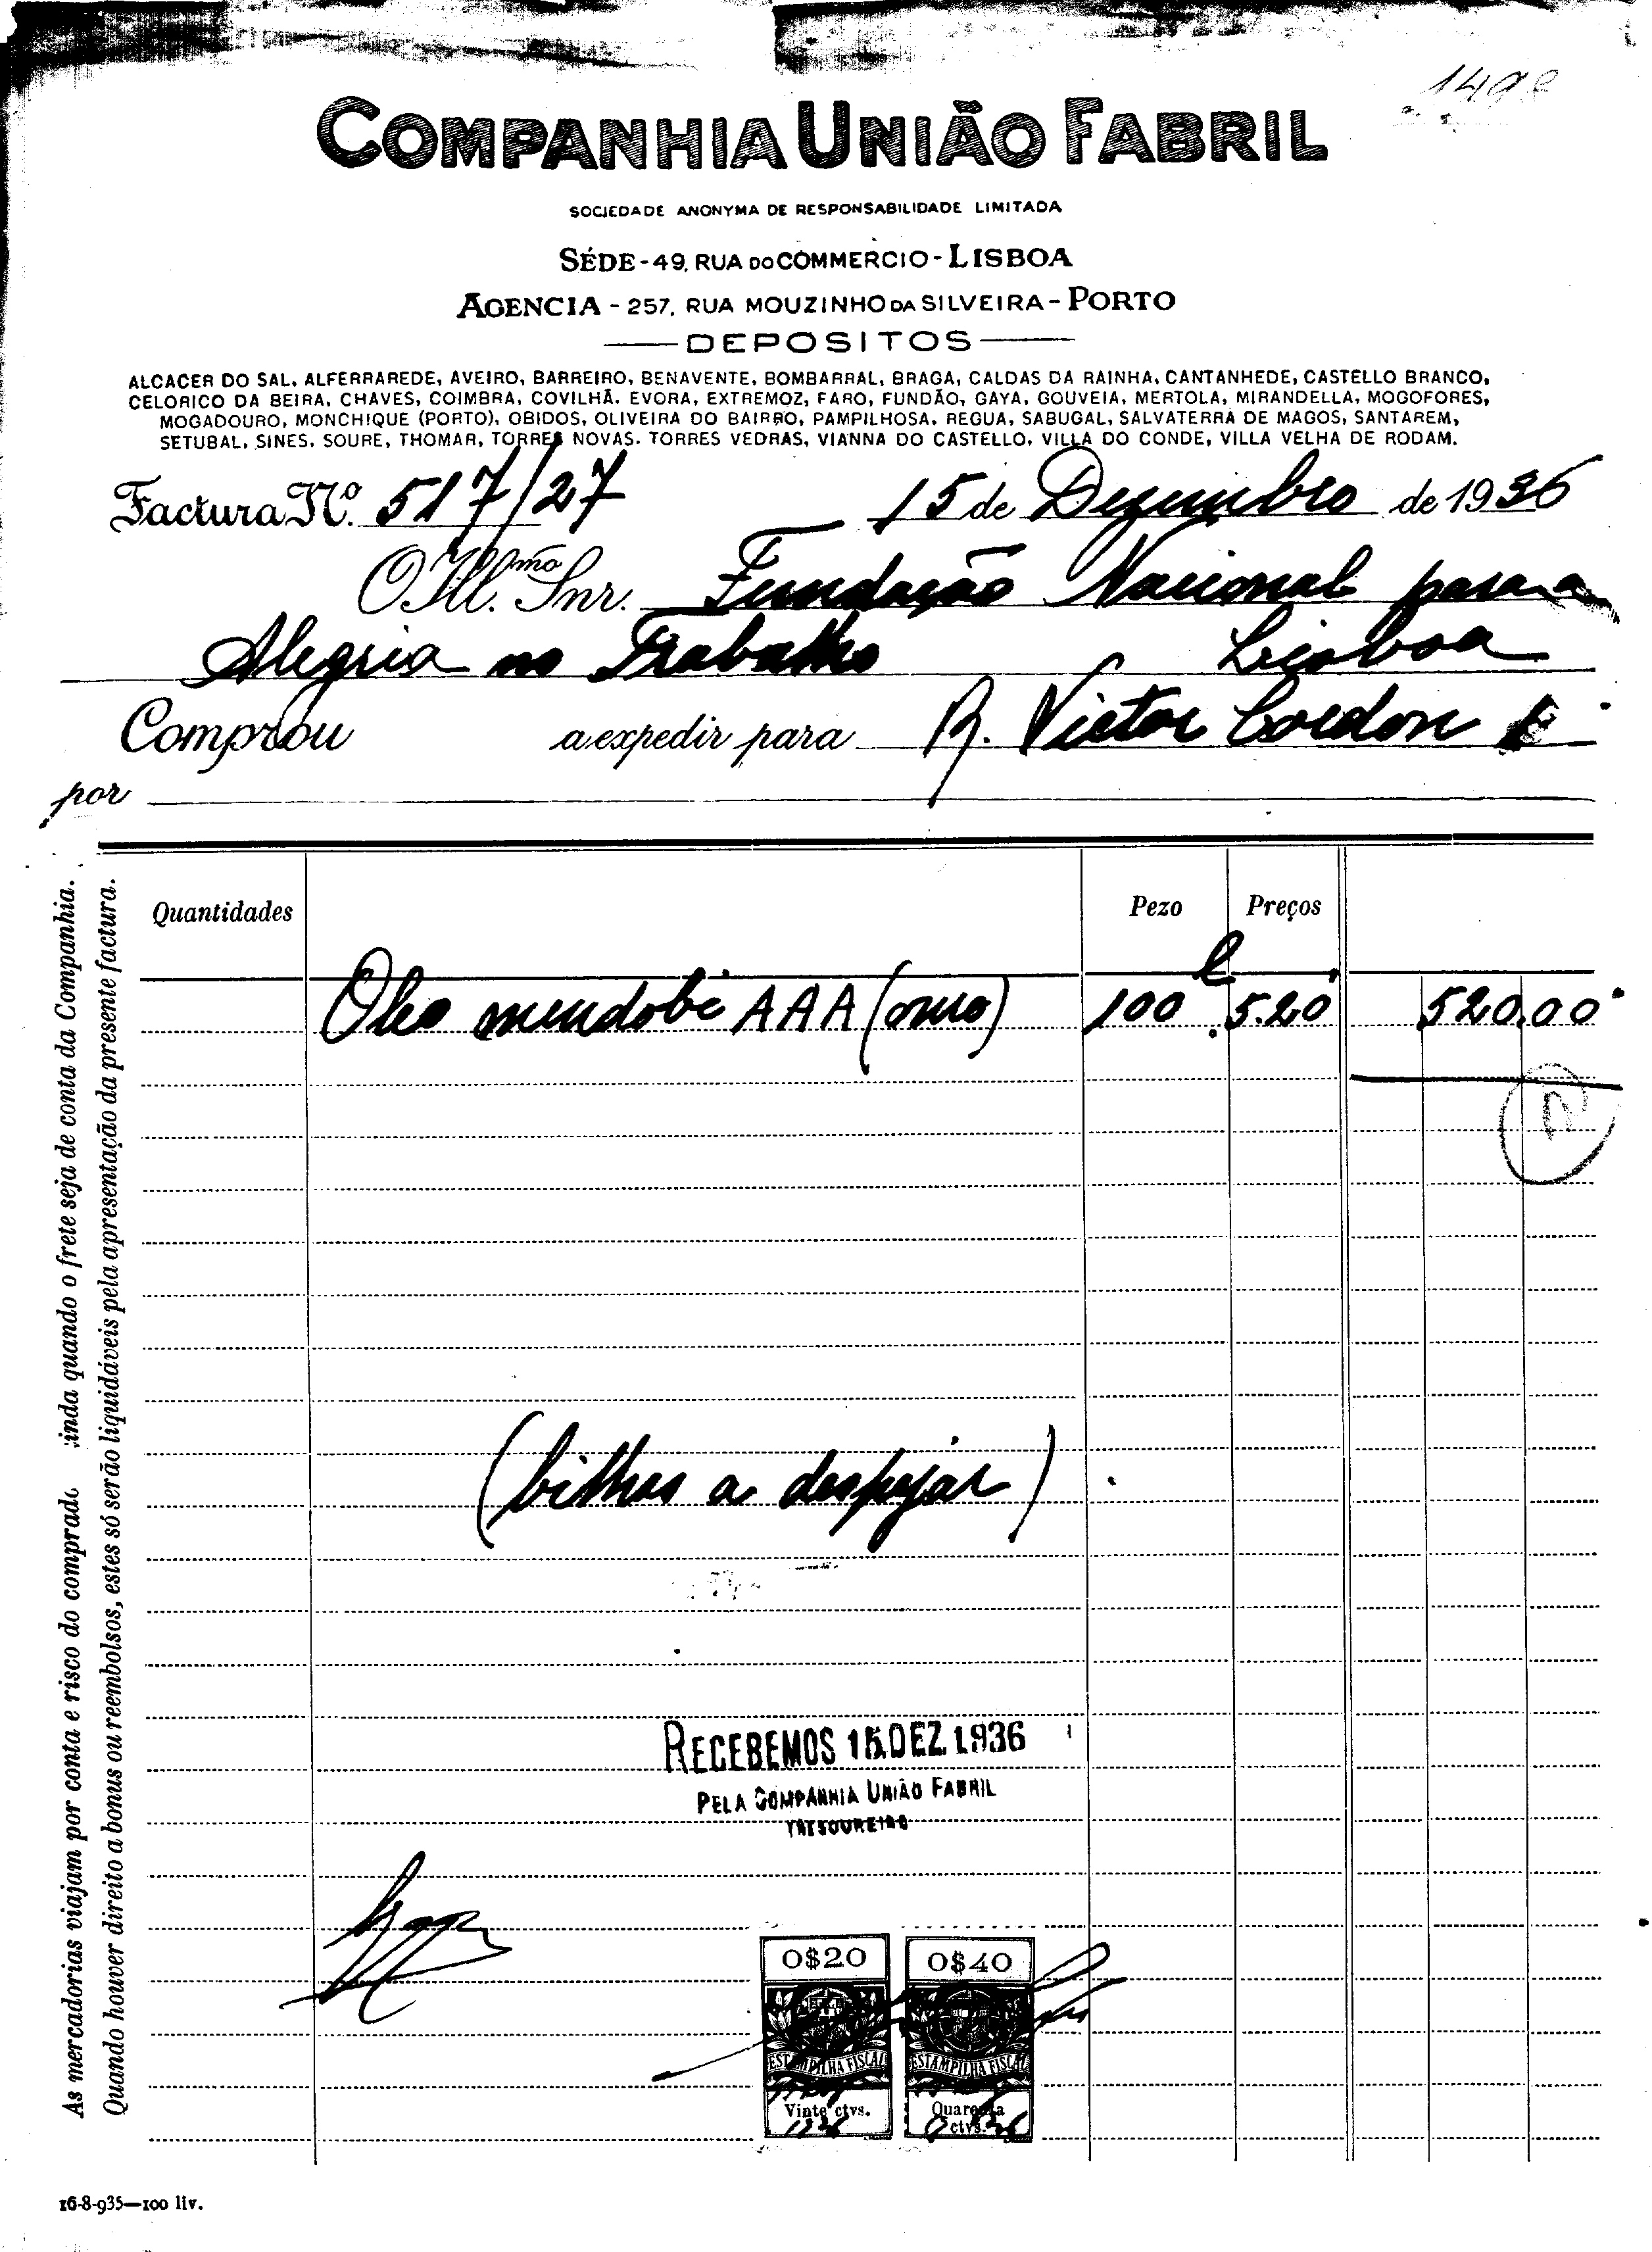 1498
COMPANHIA UNIÃO FABRIL
SOCIEDADE ANONYMA DE RESPONSABILIDADE LIMITADA
SÉDE - 49, RUA DO COMMERCIO - LISBOA
AGENCIA - 257, RUA MOUZINHO DA SILVEIRA - PORTO
DEPOSITOS
ALCACER DO SAL, ALFERRAREDE, AVEIRO, BARREIRO, BENAVENTE, BOMBARRAL, BRAGA, CALDAS DA RAINHA, CANTANHEDE, CASTELLO BRANCO,
CELORICO DA BEIRA, CHAVES, COIMBRA, COVILHÃ, EVORA, EXTREMOZ, FARO, FUNDÃO, GAYA, GOUVEIA, MERTOLA, MIRANDELLA, MOGOFORES,
MOGADOURO, MONCHIQUE (PORTO), OBIDOS, OLIVEIRA DO BAIRRO, PAMPILHOSA, REGUA, SABUGAL, SALVATERRA DE MAGOS, SANTAREM,
SETUBAL, SINES, SOURE, THOMAR, TORRES NOVAS, TORRES VEDRAS, VIANNA DO CASTELLO, VILLA DO CONDE, VILLA VELHA DE RODAM.
Factura Nº. 517/27 15 de Dezembro de 1936
O Ill.mo Snr. Fundação Nacional para a
Alegria no Trabalho Lisboa
Comprou a expedir para R. Victor Cordon
por
Quantidades Pezo Preços
Oleo mendobi AAA (ouro) 100 l 5.20 520,00
(bilhas a despejar)
RECEBEMOS 15 DEZ. 1936
PELA COMPANHIA UNIÃO FABRIL
TESOUREIRO
0$20 0$40
ESTAMPILHA FISCAL ESTAMPILHA FISCAL
Vinte ctvs. Quarenta ctvs.
As mercadorias viajam por conta e risco do comprado inda quando o frete seja de conta da Companhia.
Quando houver direito a bonus ou reembolsos, estes só serão liquidáveis pela apresentação da presente factura.
16-8-935—100 liv.